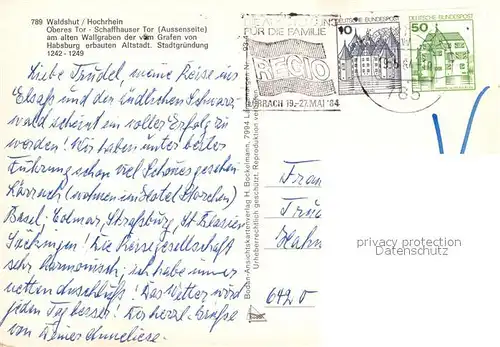 789 Waldshut / Hochrhein
Oberes Tor - Schaffhauser Tor (Aussenseite)
am alten Wallgraben der vom Grafen von
Habsburg erbauten Altstadt. Stadtgründung
1242 - 1249
Liebe Trudel, meine Reise ins
Elsaß und den südlichen Schwarz-
wald scheint ein voller Erfolg zu
werden! Wir haben unter bester
Führung schon viel Schönes gesehen:
Lörrach (wohnen im Hotel Storchen)
Basel, Colmar, Straßburg, St. Blasien
Säckingen. Die Reisegesellschaft
sehr harmonisch; ich habe immer
netten Anschluß! Das Wetter wird
jeden Tag besser! Herzl. Grüße
von Deiner Anneliese.
FÜR DIE FAMILIE
REGIO
LÖRRACH 19.-27. MAI '84
10
DEUTSCHE BUNDESPOST
50
DEUTSCHE BUNDESPOST
785
Boden-Ansichtskartenverlag H. Bockelmann, 7994
Urheberrechtlich geschützt. Reproduktion verboten
Frau
Hahn
6420
privacy protection
Datenschutz